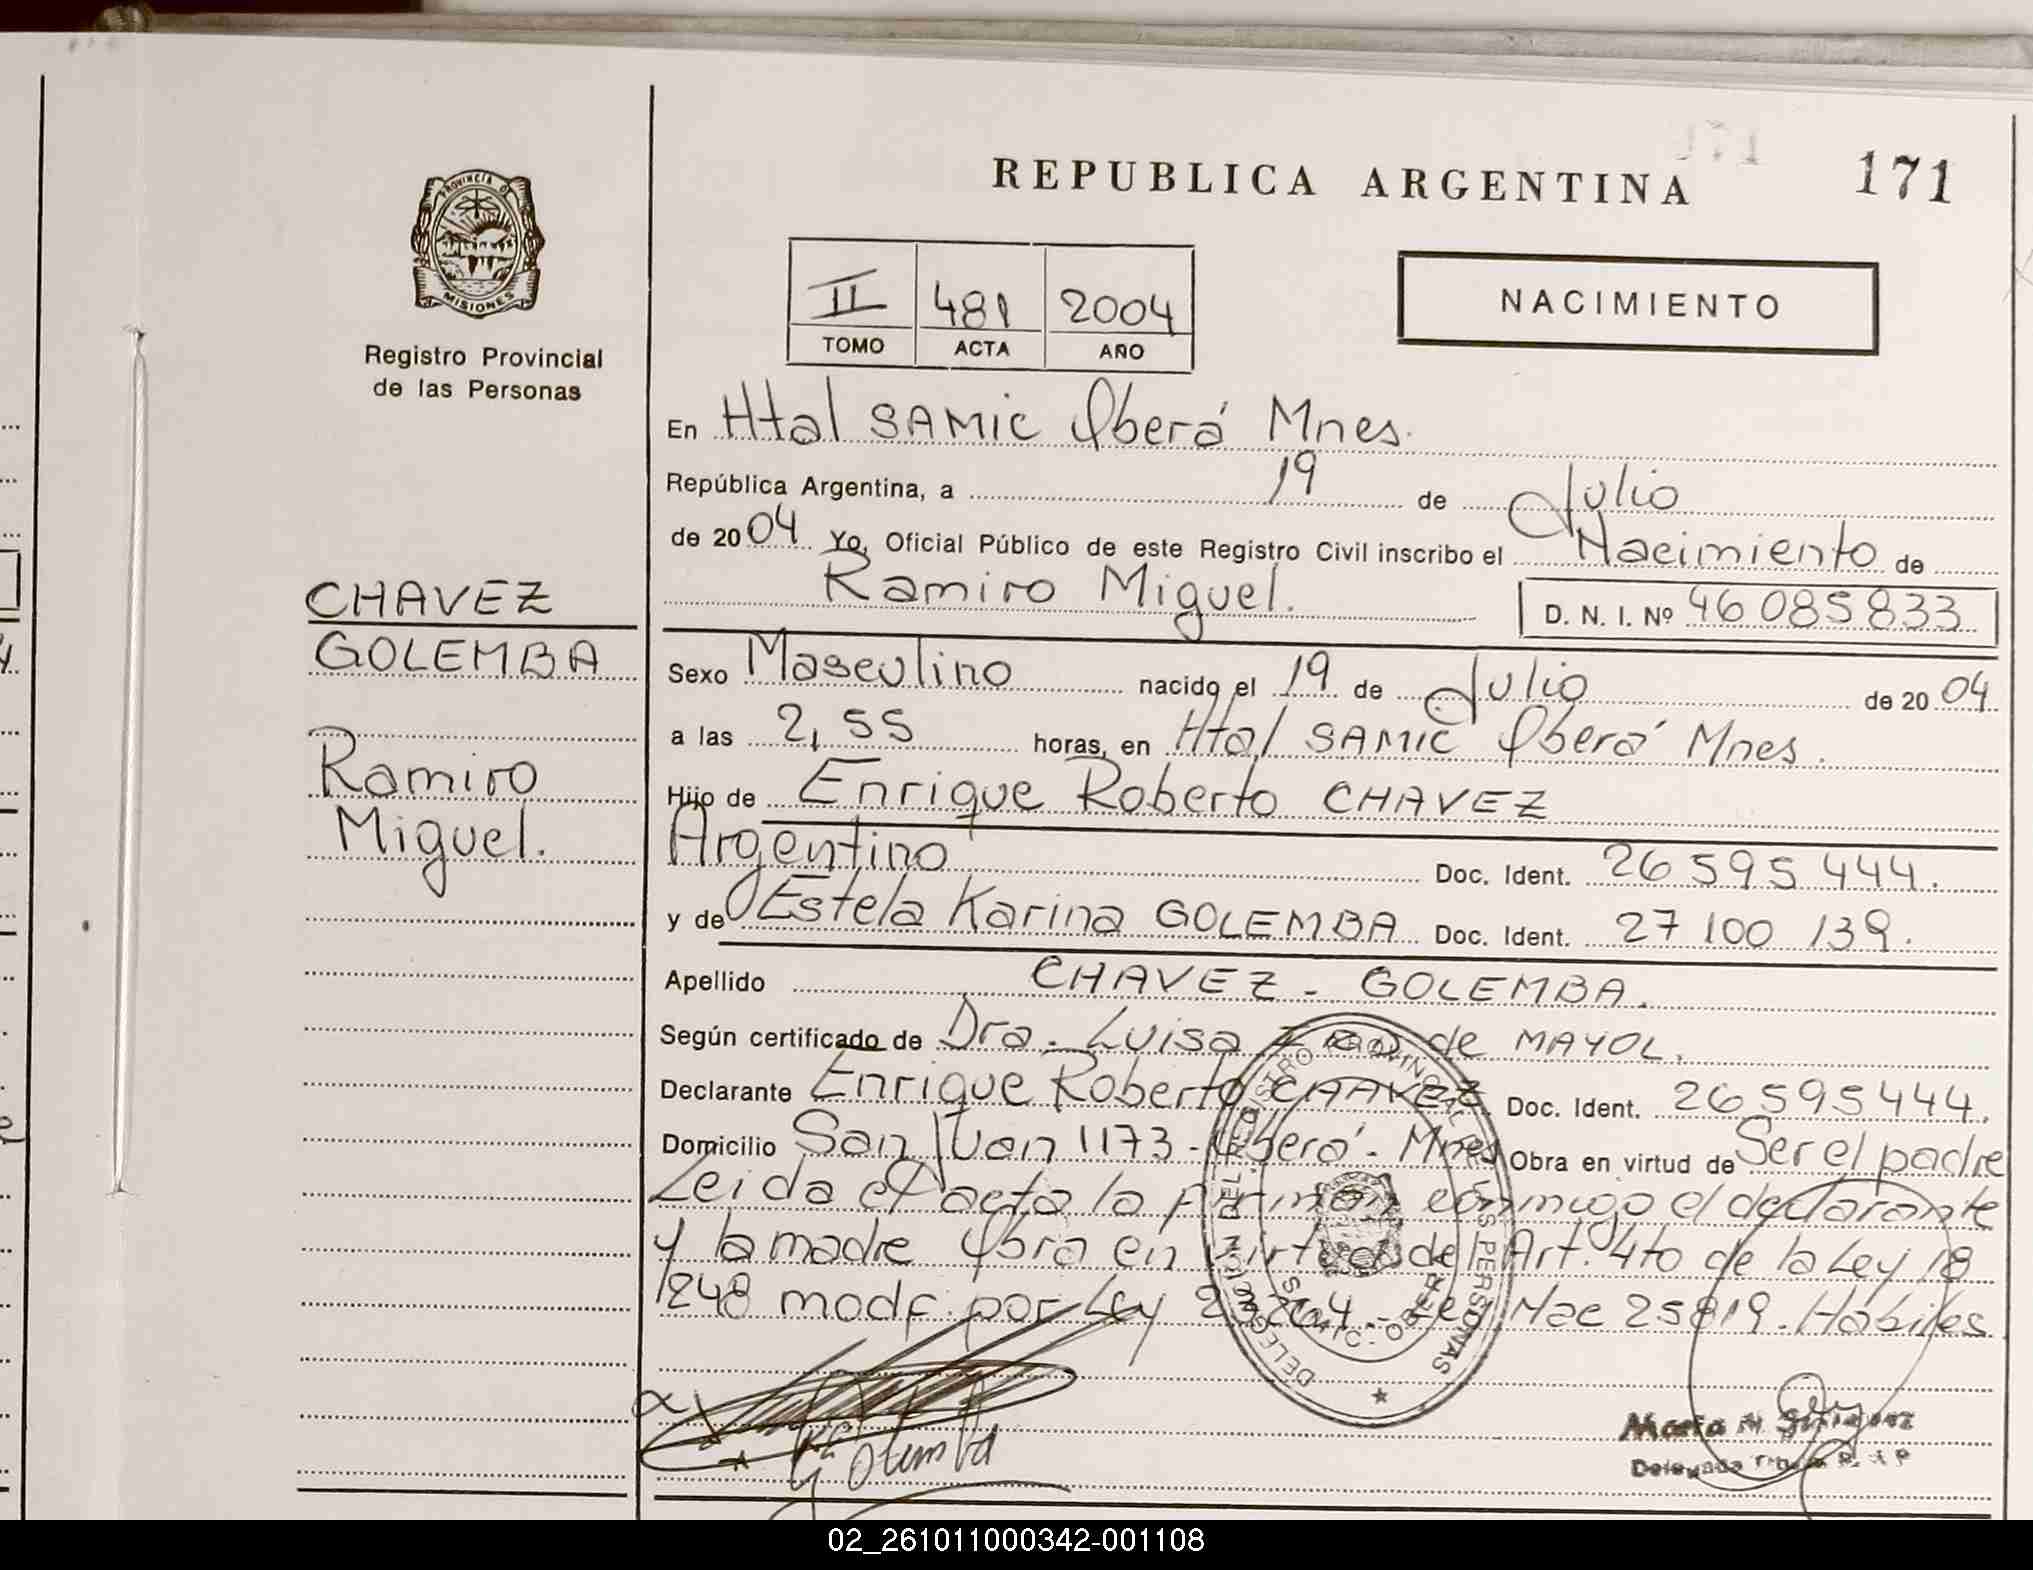 171
REPUBLICA ARGENTINA
PROVINCIA DE
MISIONES
Registro Provincial
de las Personas
II 481 2004
TOMO ACTA AÑO
NACIMIENTO
CHAVEZ
GOLEMBA
Ramiro
Miguel.
En Htal SAMIC Oberá Mnes.
República Argentina, a 19 de Julio
de 2004 Yo, Oficial Público de este Registro Civil inscribo el Nacimiento de
Ramiro Miguel. D. N. I. Nº 46 085 833
Sexo Masculino nacido el 19 de Julio de 2004
a las 2,55 horas, en Htal SAMIC Oberá Mnes.
Hijo de Enrique Roberto CHAVEZ
Argentino Doc. Ident. 26 595 444.
y de Estela Karina GOLEMBA Doc. Ident. 27 100 139.
Apellido CHAVEZ - GOLEMBA.
Según certificado de Dra. Luisa de MAYOL.
Declarante Enrique Roberto CHAVEZ Doc. Ident. 26 595 444.
Domicilio San Juan 1173 - Oberá - Mnes Obra en virtud de Ser el padre
Leida el acta la firman conmigo el declarante
y la madre Obra en virtud del Art. 4to de la Ley 18
248 modf. por Ley Nac 25819. Habiles
REGISTRO PROVINCIAL DE LAS PERSONAS
Golemba
02_261011000342-001108